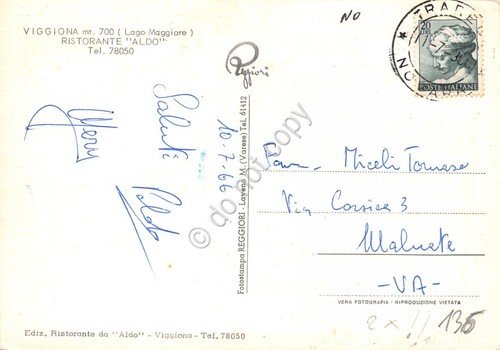 VIGGIONA mt. 700 ( Lago Maggiore )
RISTORANTE "ALDO"
Tel. 78050
NO
Reggiori
30
POSTE ITALIANE
Saluti
Aldo
10-7-66
Fotostampa REGGIORI - Laveno M. (Varese) Tel. 61412
© do not copy
Fam. Miceli Tomaso
Via Corsica 3
Malnate
-VA-
VERA FOTOGRAFIA - RIPRODUZIONE VIETATA
Ediz. Ristorante da "Aldo" - Viggiona - Tel. 78050
135